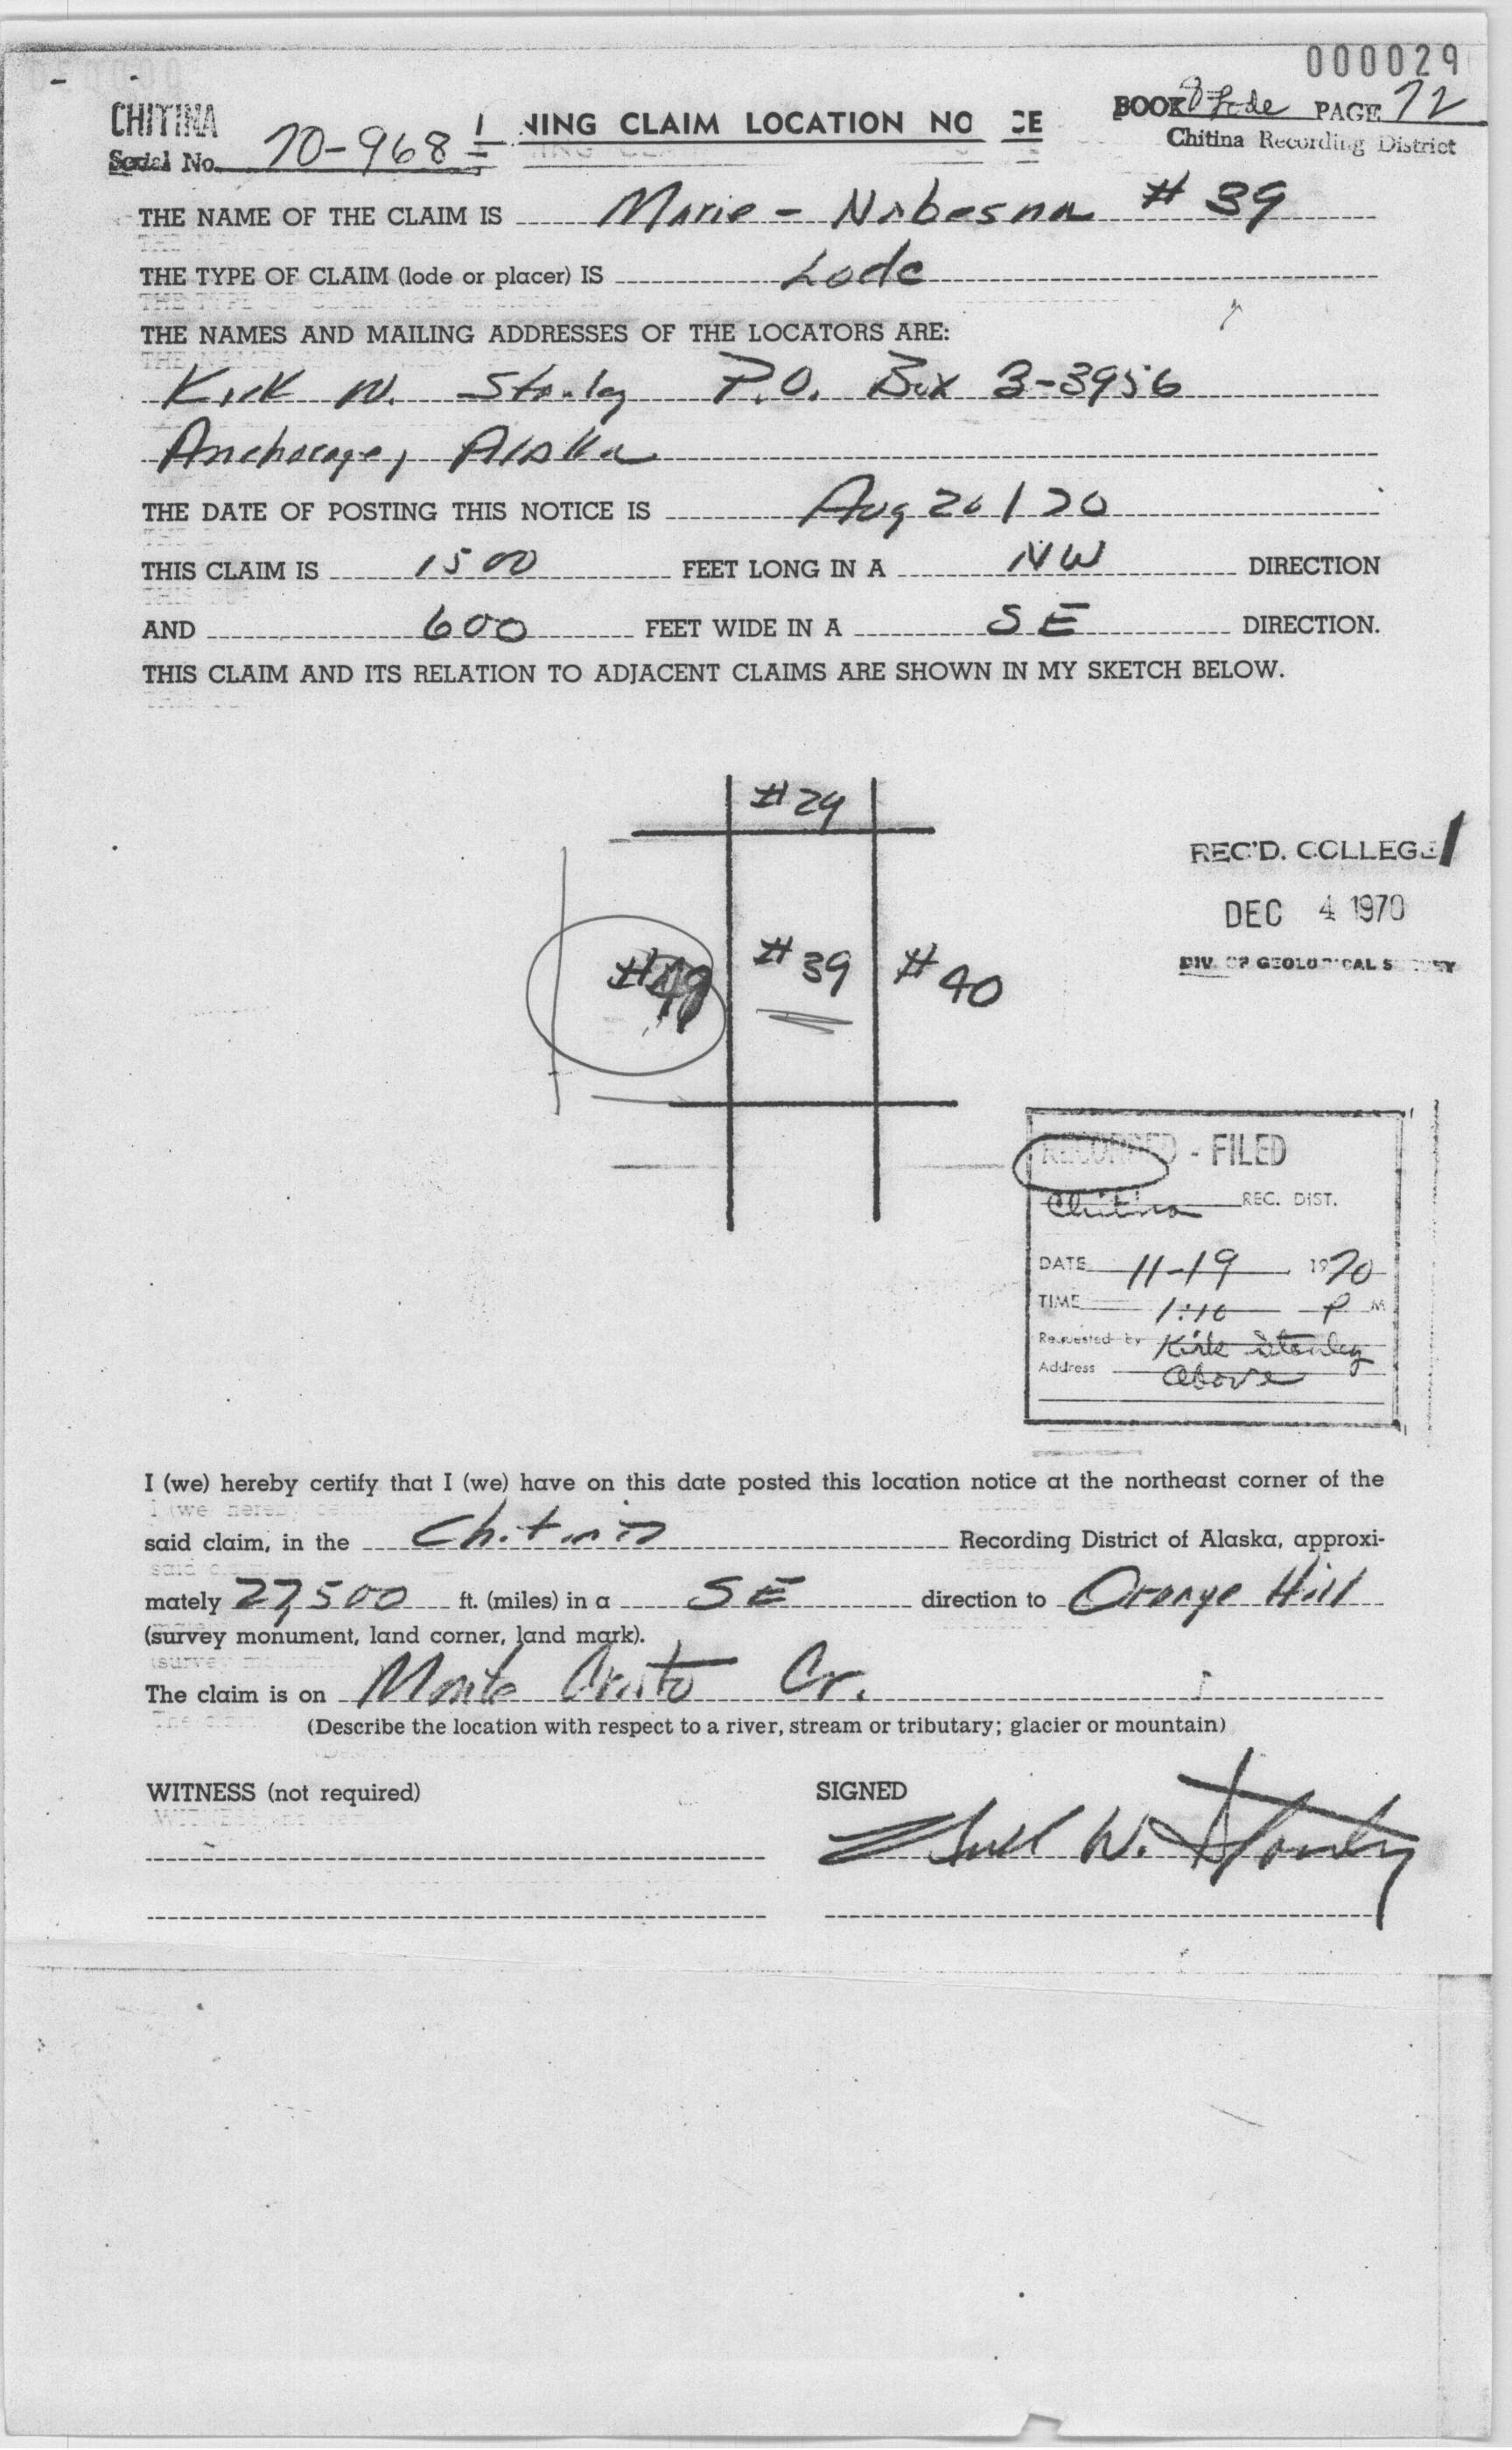 000029
CHITINA
Serial No. 70-968
NING CLAIM LOCATION NO CE
BOOK 8 Lode PAGE 72
Chitina Recording District
THE NAME OF THE CLAIM IS Marie - Nabesna # 39
THE TYPE OF CLAIM (lode or placer) IS Lode
THE NAMES AND MAILING ADDRESSES OF THE LOCATORS ARE:
Kirk W. Stanley P.O. Box 3-3956
Anchorage, Alaska
THE DATE OF POSTING THIS NOTICE IS Aug 26 / 70
THIS CLAIM IS 1500 FEET LONG IN A NW DIRECTION
AND 600 FEET WIDE IN A SE DIRECTION.
THIS CLAIM AND ITS RELATION TO ADJACENT CLAIMS ARE SHOWN IN MY SKETCH BELOW.
#29
REC'D. COLLEGE
DEC 4 1970
DIV. OF GEOLOGICAL SURVEY
#39 #40
RECORDED - FILED
Chitina REC. DIST.
DATE 11-19 1970
TIME 1:10 P M
Requested by Kirk Stanley
Address above
I (we) hereby certify that I (we) have on this date posted this location notice at the northeast corner of the
said claim, in the Chitina Recording District of Alaska, approxi-
mately 27,500 ft. (miles) in a SE direction to Orange Hill
(survey monument, land corner, land mark).
The claim is on Monte Cristo Cr.
(Describe the location with respect to a river, stream or tributary; glacier or mountain)
WITNESS (not required) SIGNED
W. Stanley